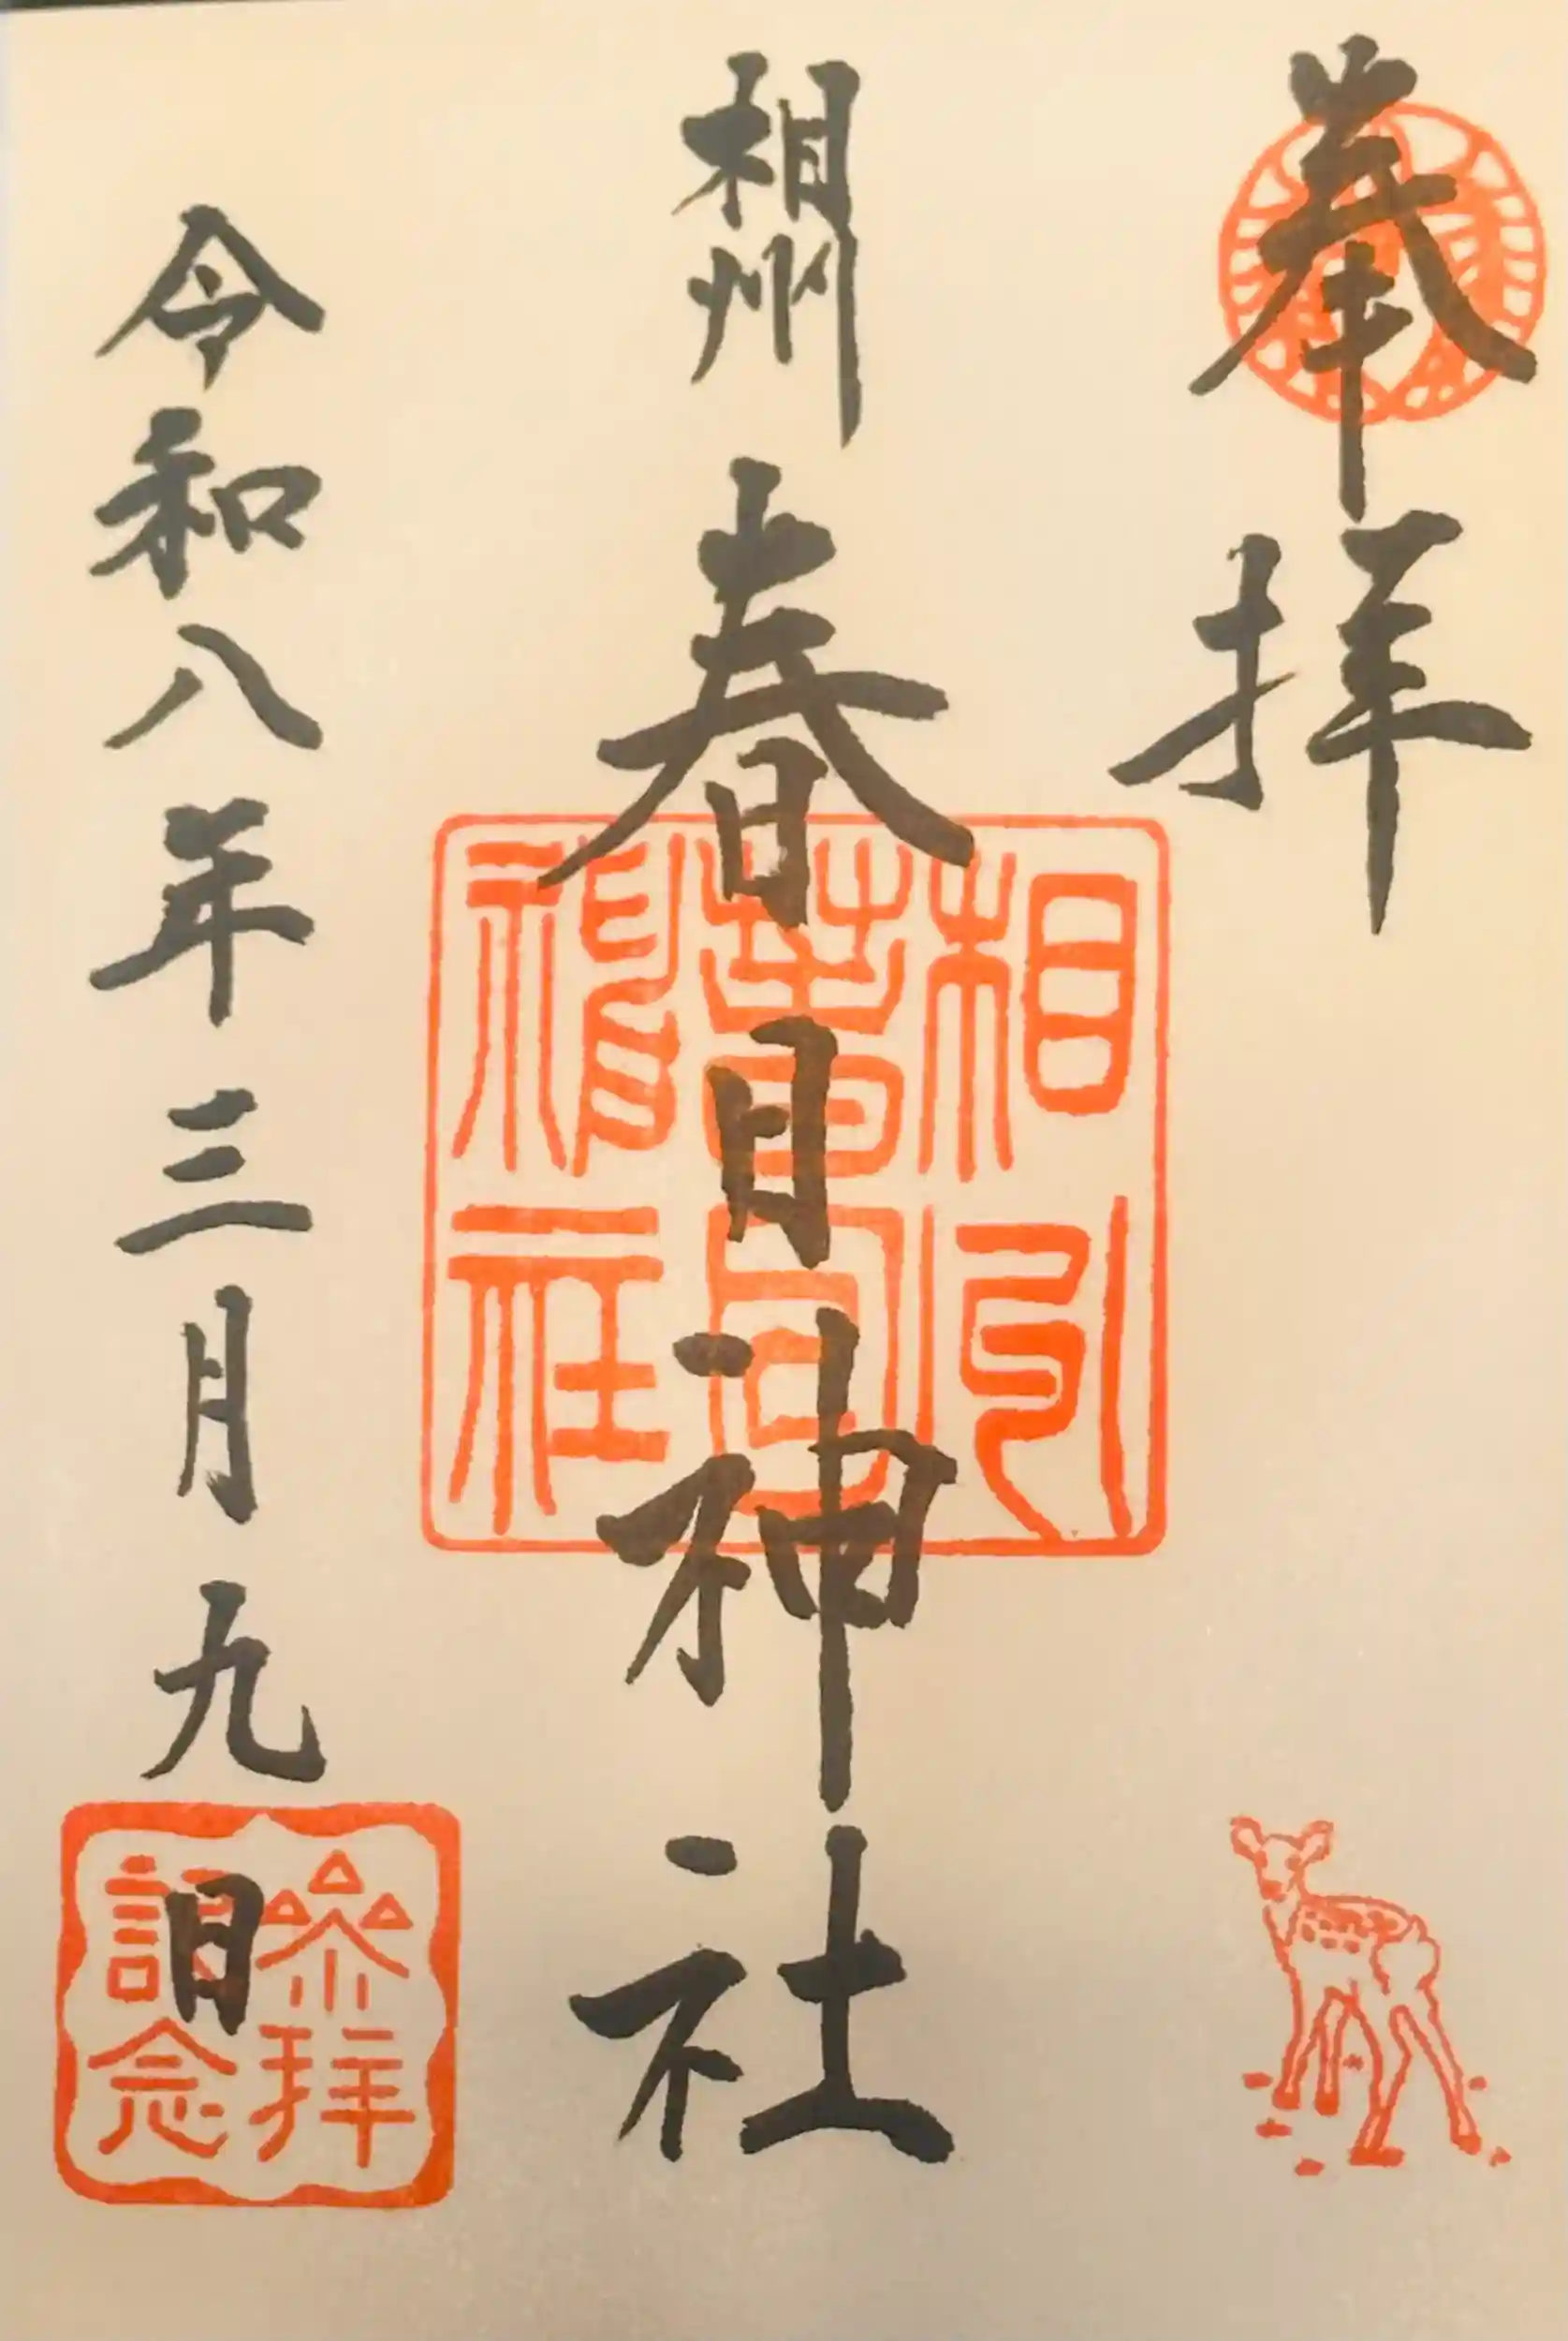 奉拝
相州 春日神社
相州春日神社
令和八年三月九日
參拝記念